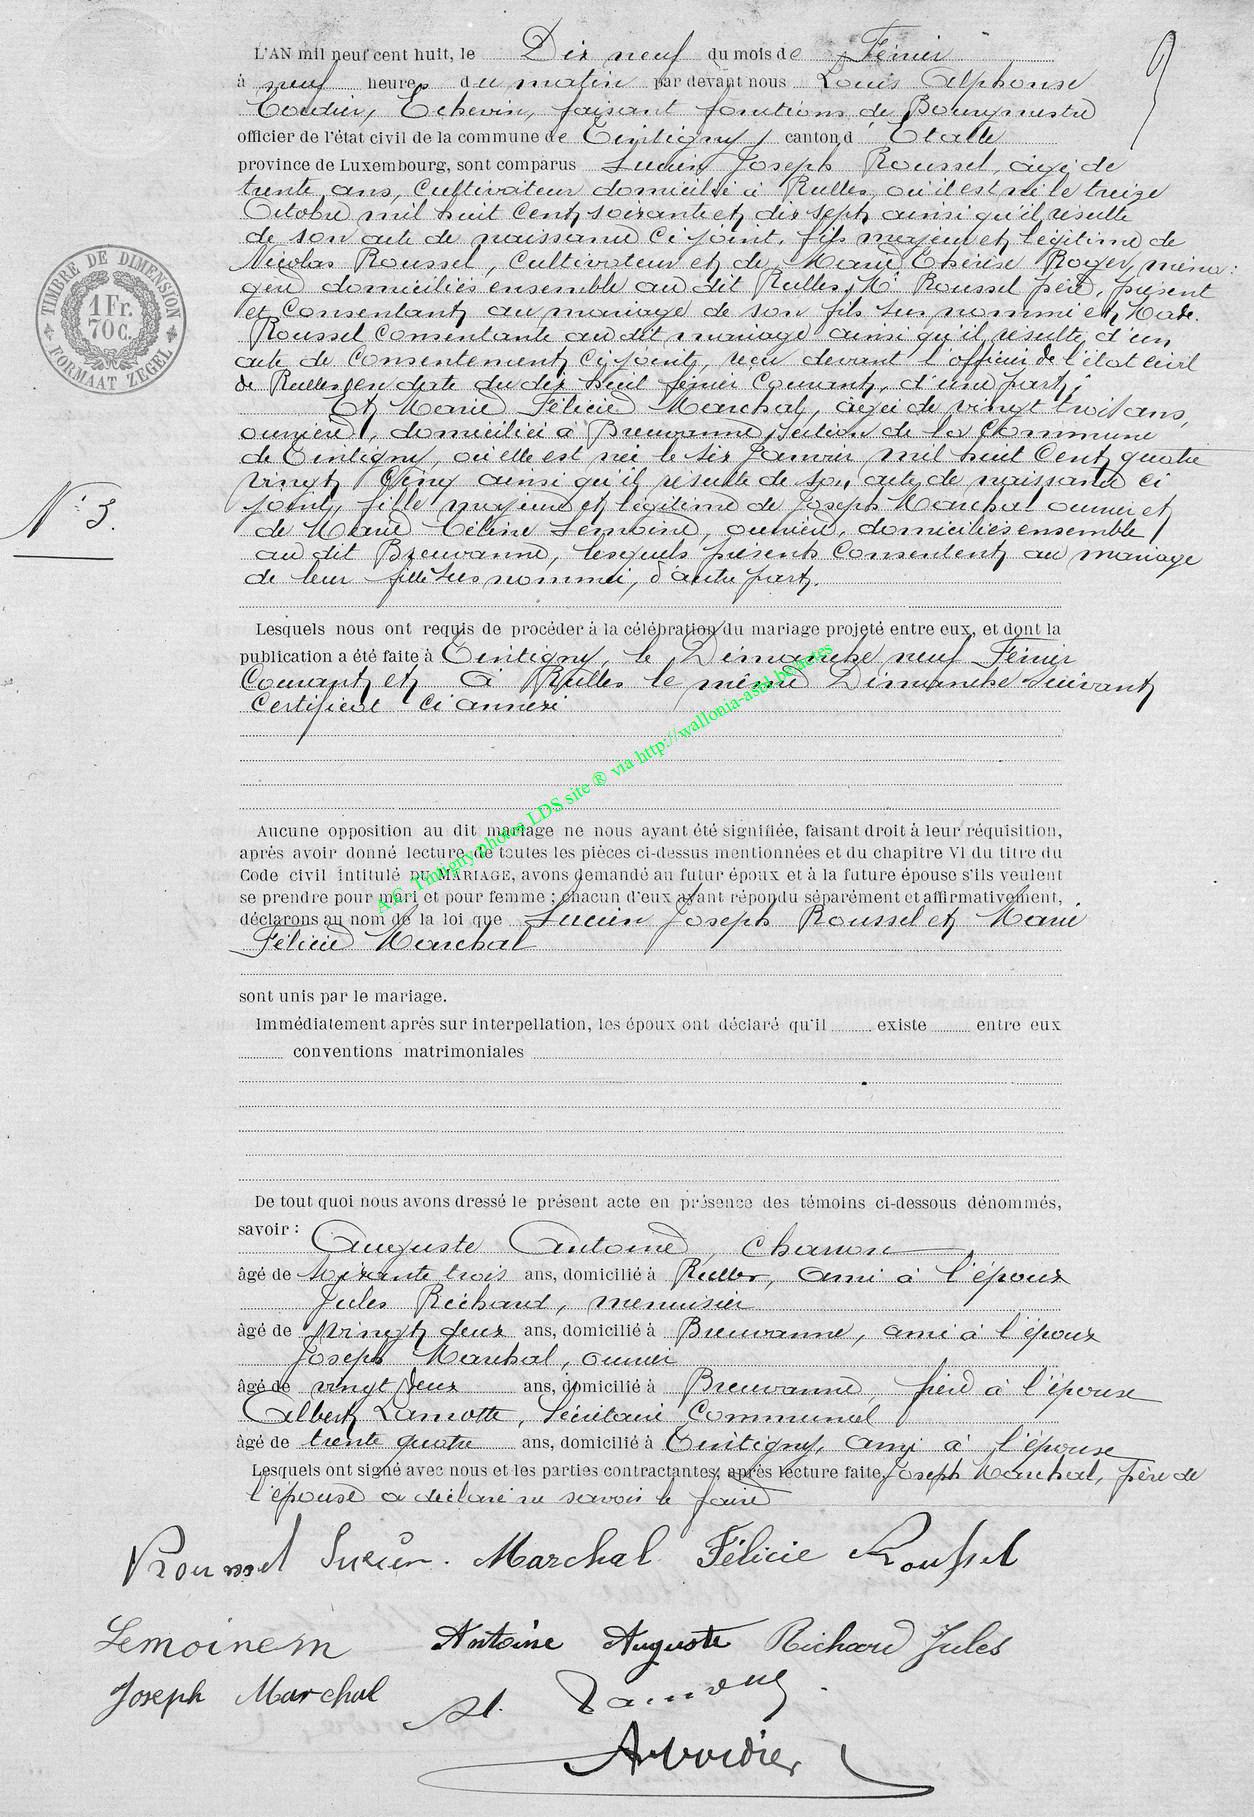 L'AN mil neuf cent huit, le Dix neuf du mois de Février
à neuf heures du matin par devant nous Louis Alphonse
Echevin, faisant fonctions de Bourgmestre
officier de l'état civil de la commune de Tintigny, canton d'Etalle
province de Luxembourg, sont comparus Lucien Joseph Roussel, âgé de
trente ans, Cultivateur domicilié à Rulles, où il est né le treize
Octobre mil huit Cent soixante et dix sept ainsi qu'il résulte
de son acte de naissance ci joint, fils majeur et légitime de
Nicolas Roussel, Cultivateur et de Marie Thérèse Roger, ména:
gère domiciliés ensemble au dit Rulles, Mr Roussel père, présent
et Consentant au mariage de son fils sus nommé et Made.
Roussel Consentante au dit mariage ainsi qu'il résulte d'un
acte de Consentement ci joint, reçu devant l'officier de l'état civil
de Rulles en date du dix huit février Courant, d'une part;
Et Marie Félicie Marchal, âgée de vingt trois ans,
ouvrière, domiciliée à Breuvanne, section de la Commune
de Tintigny, où elle est née le six Janvier mil huit Cent quatre
vingt Cinq ainsi qu'il résulte de son acte de naissance ci
joint, fille majeure et légitime de Joseph Marchal ouvrier et
de Marie Céline Lemoine, ouvrière, domiciliés ensemble
au dit Breuvanne, lesquels présents Consentent au mariage
de leur fille sus nommée, d'autre part.
TIMBRE DE DIMENSION
1 Fr.
70 C.
FORMAAT ZEGEL
N° 3.
Lesquels nous ont requis de procéder à la célébration du mariage projeté entre eux, et dont la
publication a été faite à Tintigny, le Dimanche neuf Février
Courant et à Rulles le même Dimanche suivant
Certificat ci annexé
A.C. Tintigny photos LDS site ® via http://wallonia-asbl.be/actes
Aucune opposition au dit mariage ne nous ayant été signifiée, faisant droit à leur réquisition,
après avoir donné lecture de toutes les pièces ci-dessus mentionnées et du chapitre VI du titre du
Code civil intitulé DU MARIAGE, avons demandé au futur époux et à la future épouse s'ils veulent
se prendre pour mari et pour femme ; chacun d'eux ayant répondu séparément et affirmativement,
déclarons au nom de la loi que Lucien Joseph Roussel et Marie
Félicie Marchal
sont unis par le mariage.
Immédiatement après sur interpellation, les époux ont déclaré qu'il existe entre eux
conventions matrimoniales
De tout quoi nous avons dressé le présent acte en présence des témoins ci-dessous dénommés,
savoir :
Auguste Antoine, charron
âgé de soixante trois ans, domicilié à Rulles, ami à l'époux
Jules Richard, menuisier
âgé de vingt deux ans, domicilié à Breuvanne, ami à l'époux
Joseph Marchal, ouvrier
âgé de vingt deux ans, domicilié à Breuvanne, frère à l'épouse
Albert Lamotte, Secrétaire Communal
âgé de trente quatre ans, domicilié à Tintigny, ami à l'épouse
Lesquels ont signé avec nous et les parties contractantes, après lecture faite, Joseph Marchal, père de
l'épouse a déclaré ne savoir le faire
Roussel Lucien. Marchal Félicie Roussel
Lemoine m Antoine Auguste Richard Jules
Joseph Marchal